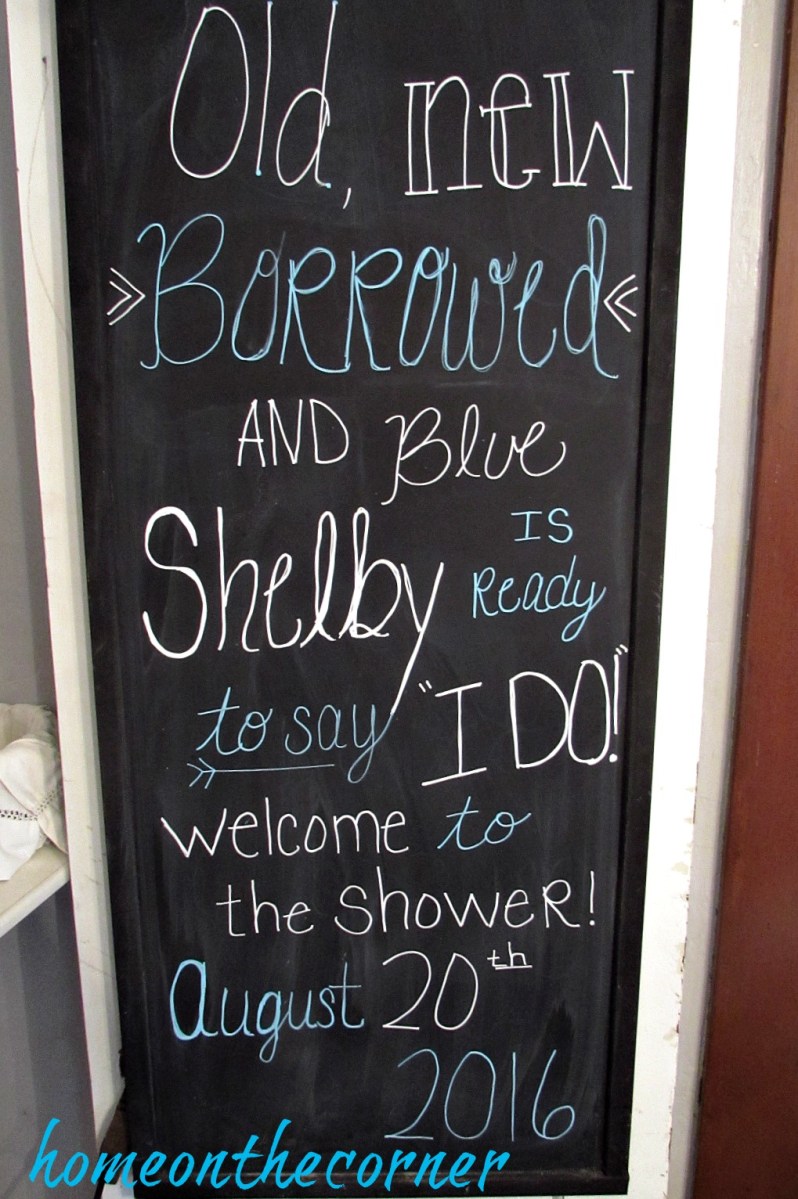 Old, new
>> Borrowed <<
AND Blue
Shelby IS Ready
to say "I DO!"
welcome to
the SHOWER!
August 20th
2016
homeonthecorner